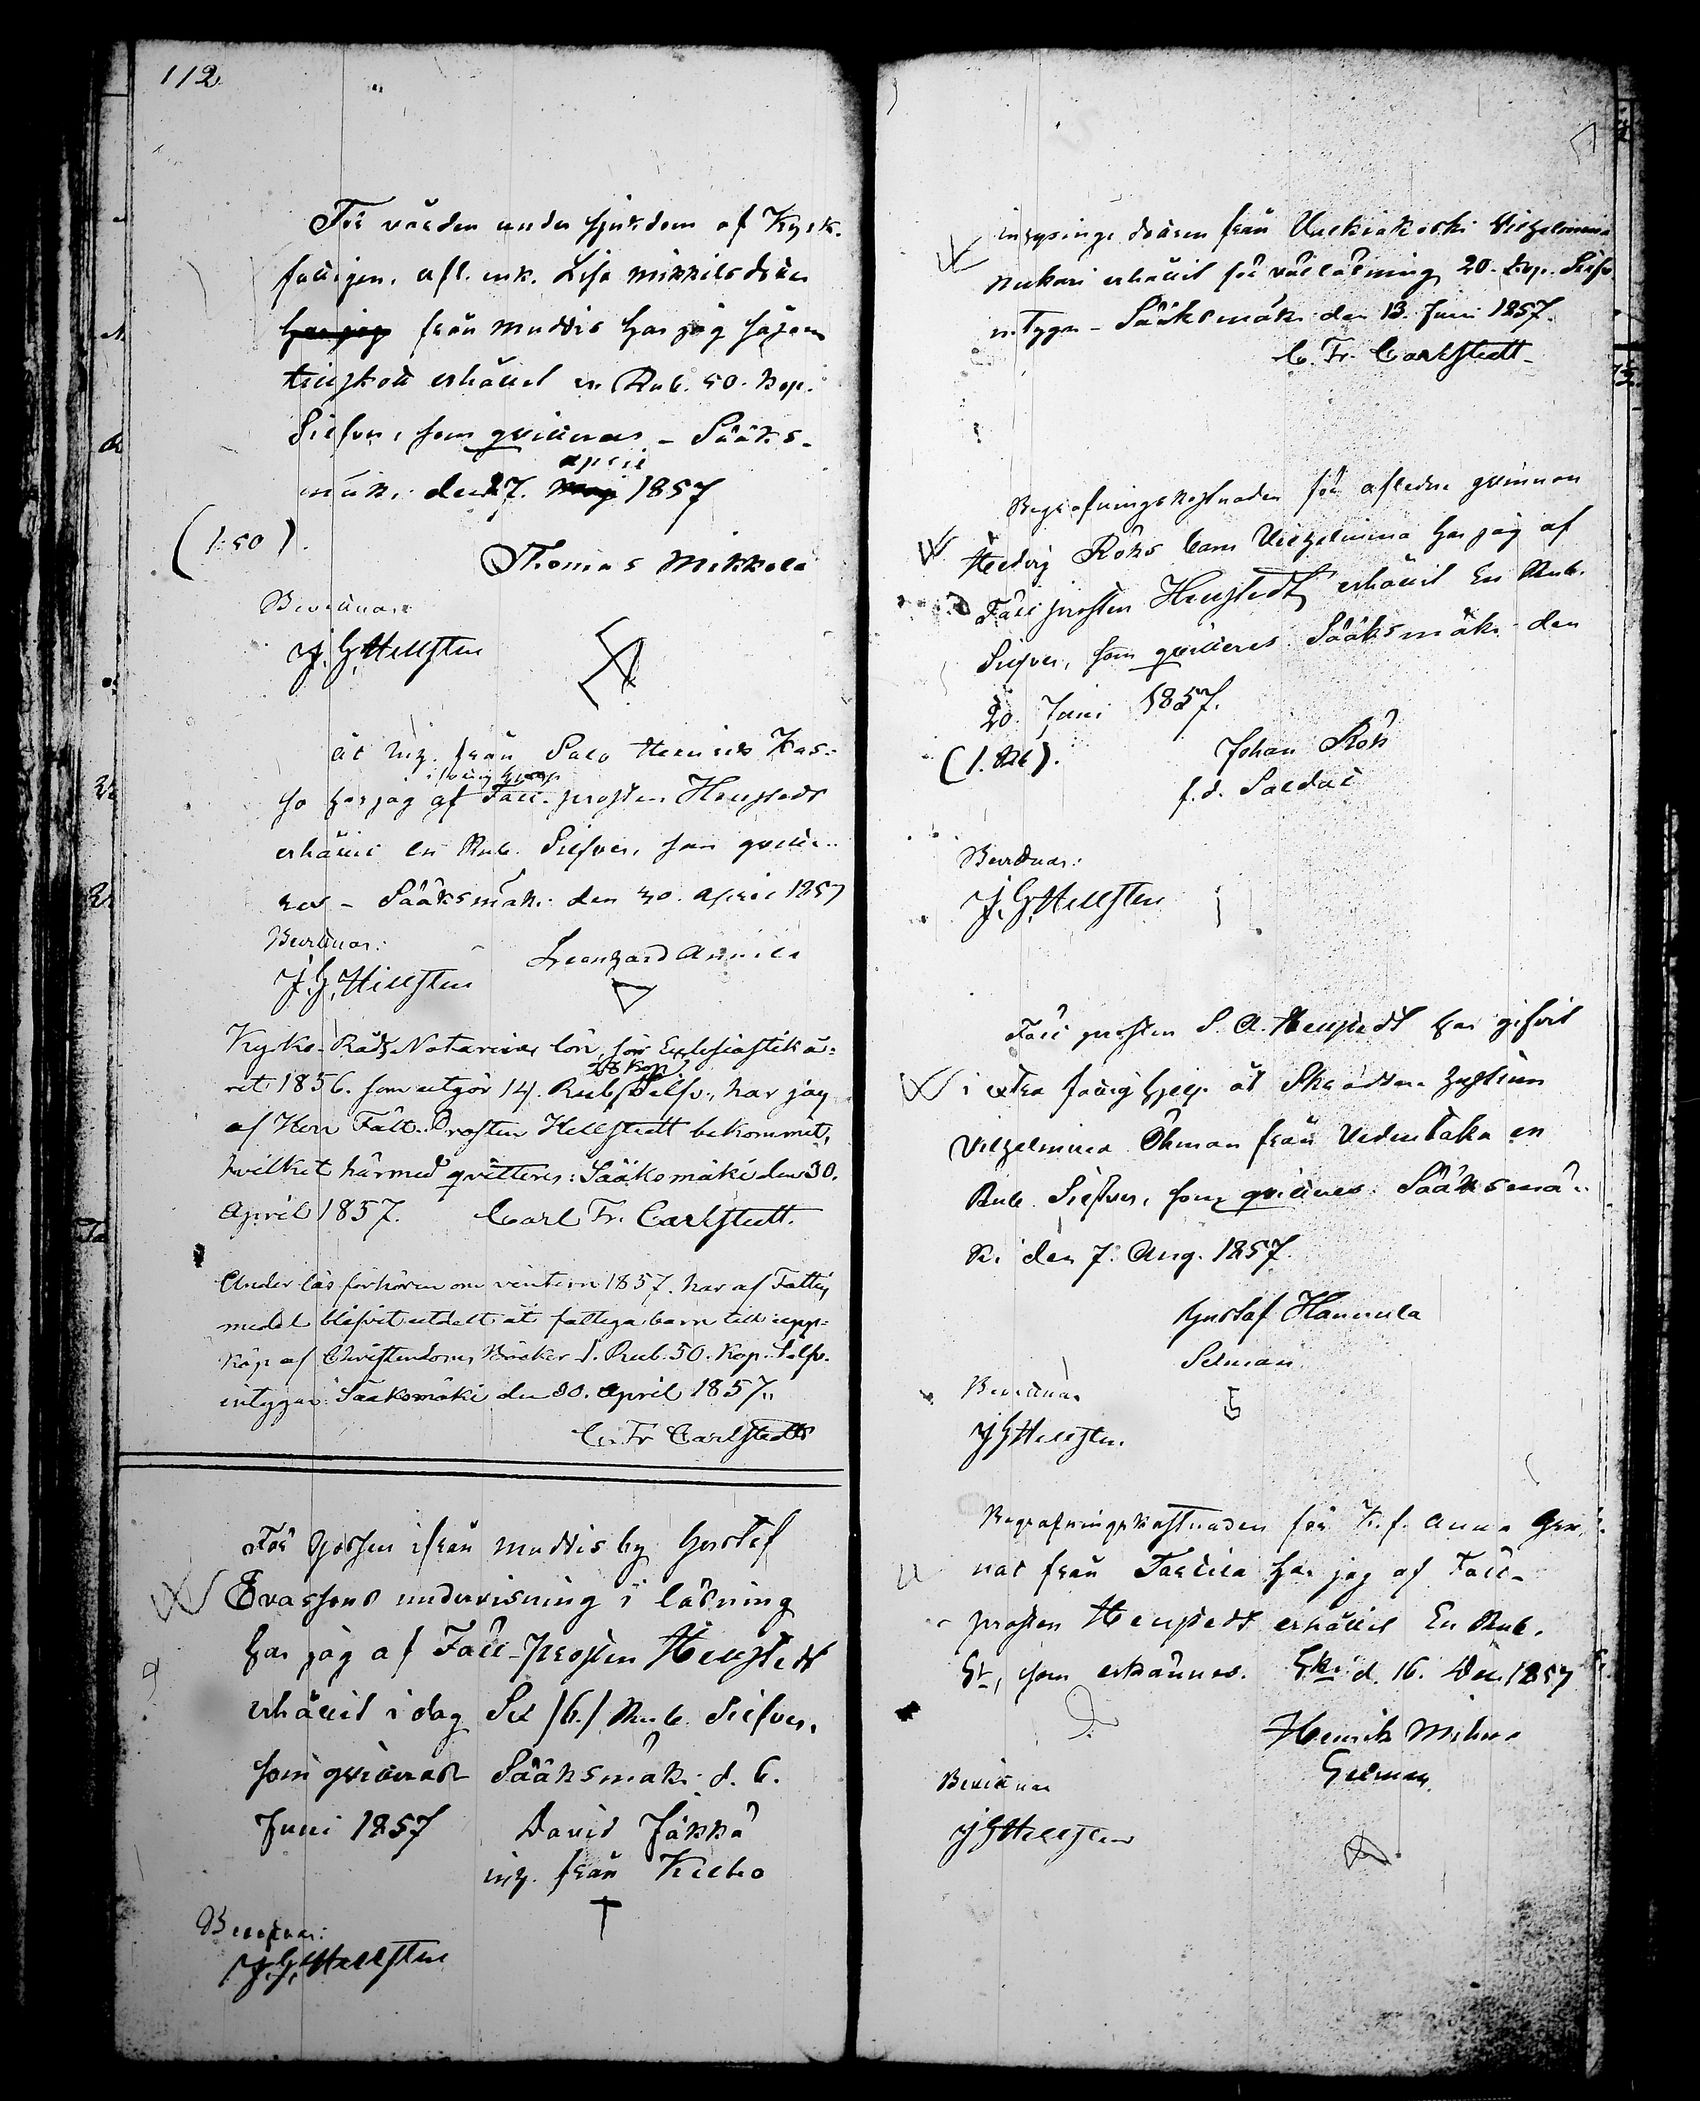 112
För vården under sjukdom af Kyrk-
fattigen, afl. enk. Lisa Mikkilsdotter
har jag från Muddis har jag såsom
erhållit en Rub. 50. kop.
Silfver, som qvitteras – Sääks-
april
mäki den 27. Maji 1857
(1:50).
Thomas Mikkola
Bevittnar:
J. G. Hellsten
åt Inh. från Salo Henrik Kas-
i fattig hjelp
so har jag af Fält-prosten Hellstedt
erhållit en Rub. Silfver, som qvitte-
ras – Sääksmäki den 30. April 1857
Bevittnar:
Leonhard Annila
J. G. Hellsten
Kyrko-Råds Notariens lön, för Ecklesiastik å-
28 Kop.
ret 1856. som utgör 14. Rub. Silfv., har jag
af Herr Fält-Prosten Hellstedt bekommit,
hvilket härmed qvitteres: Sääksmäki den 30.
April 1857. Carl Fr. Carlstedt.
Under läsförhören om vintern 1857. har af Fattig
medel blifvit utdelt åt fattiga barn till upp-
köp af Christendoms Böcker 1. Rub. 50. Kop. Silfv.
intygar: Sääksmäki den 30. April 1857.
C. Fr. Carlstedt
För gossen ifrån Muddis by Gustaf
Evassons undervisning i läsning
har jag af Fält-prosten Hellstedt
erhållit i dag Sex /6./ Rub. Silfver,
som qvitteras Sääksmäki d. 6.
Juni 1857 David Jäkkä
inh. från Kelho
Bevittnar:
J. G. Hellsten
inhysings dottren från Valkiakoski Vilhelmina
erhållit för 20. kop. Silfv.
intygar – Sääksmäki den 13. Juni 1857.
C. Fr. Carlstedt
Begrafningskostnaden för afledne qvinnan
Hedvig Röks barn Vilhelmina har jag af
Fält prosten Hellstedt erhållit En Rub.
Silfver, som qvitteres. Sääksmäki den
20. Juni 1857.
(1. Rub).
Johan Rök
f.d. Soldat
Bevittnar:
J. G. Hellsten
Fält prosten S. A. Hellstedt har gifvit
i extra fattighjelp åt Skräddare hustrun
Vilhelmina Öhman från Vedentaka en
Rub. Silfver, som qvitteres. Sääksmä-
ki den 7. Aug. 1857.
Gustaf Hannula
Sexman
Bevittnar
J G Hellsten
Begrafningskostnaden för K.f. Anna
från Tarttila har jag af Fält-
prosten Hellstedt erhållit En Rub.
Sr, som erkännes. Ski d. 16. Dec 1857
Henrik
Sexman
Bevittnar
J G Hellsten